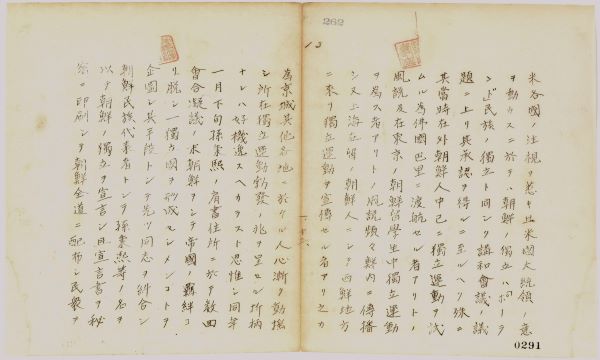 262
13
米各國ノ注視ヲ惹キ且米國大統領ノ意
ヲ動カスニ於テハ朝鮮ノ獨立ハ
民族ノ獨立ト同シク講和會議ノ議
題ニ上リ其承認ヲ得ルニ至ルヘク殊ニ
其當時在外朝鮮人中已ニ獨立運動ヲ試
ムル為佛國巴里ニ渡航セル者アリトノ
風說及在東京ノ朝鮮留學生中獨立運動
ヲ為ス者アリトノ風說頻々鮮內ニ傳播
シ又上海在留ノ朝鮮人ニシテ西鮮地方
ニ來リ獨立運動ヲ宣傳セル者アリ之カ
為京城其他各地ニ於ケル人心漸ク動搖
シ所在獨立運動勃發ノ兆ヲ呈セル折柄
ナレハ好機逸スヘカラスト思惟シ同年
一月下旬孫秉熙ノ肩書住所ニ於テ數回
會合凝議ノ末朝鮮ヲシテ帝國ノ羈絆
リ脫シ一獨立國ヲ形成セシメンコトヲ
企圖シ其手段トシテ先ツ同志ヲ糾合シ
朝鮮民族代表者トシテ孫秉熙等ノ名ヲ
以テ朝鮮ノ獨立ヲ宣言シ且宣言書ヲ秘
密ニ印刷シテ朝鮮全道ニ配布シ民衆ヲ
0291